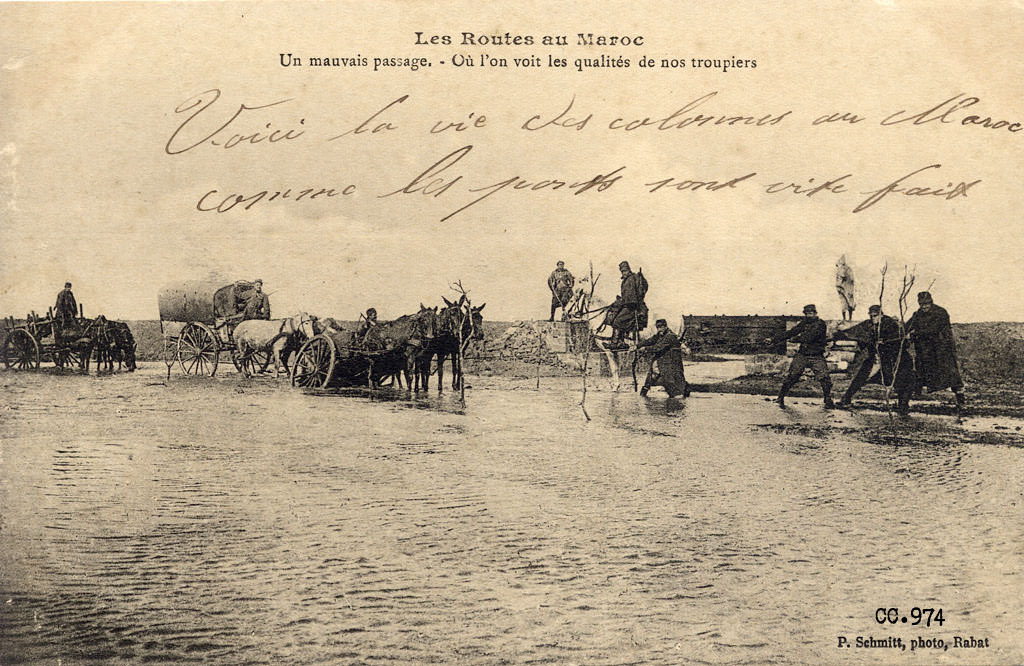 Les Routes au Maroc
Un mauvais passage. - Où l'on voit les qualités de nos troupiers
Voici la vie des colonnes au Maroc
comme les ponts sont vite fait
CC.974
P. Schmitt, photo, Rabat